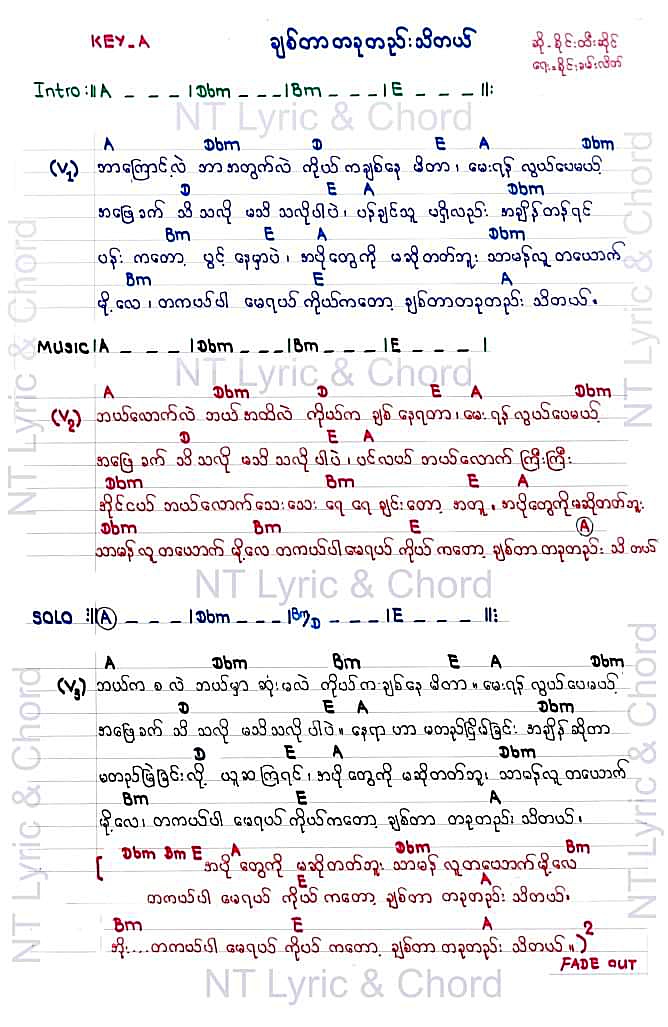 KEY_A
ချစ်တာတခုတည်းသိတယ်
ဆို-စိုင်းထီးဆိုင်
ရေး-စိုင်းခမ်းလိတ်
Intro :‖ A _ _ _ | Dbm _ _ _ | Bm _ _ _ | E _ _ _ ‖:
NT Lyric & Chord
A Dbm D E A Dbm
(V1) ဘာကြောင့်လဲ ဘာအတွက်လဲ ကိုယ် ကချစ်နေ မိတာ၊ မေးရန် လွယ်ပေမယ့်
D E A Dbm
အဖြေခက် သိ သလို မသိ သလိုပါပဲ၊ ပန်ချင်သူ မရှိလည်း အချိန်တန်ရင်
Bm E A Dbm
ပန်း ကတော့ ပွင့် နေမှာပဲ၊ အပိုတွေကို မဆိုတတ်ဘူး သာမန်လူ တယောက်
Bm E A
မို့လေ၊ တကယ်ပါ မေရယ် ကိုယ်ကတော့ ချစ်တာတခုတည်း သိတယ်။
MUSIC | A _ _ _ | Dbm _ _ _ | Bm _ _ _ | E _ _ _ |
NT Lyric & Chord
A Dbm D E A Dbm
(V2) ဘယ်လောက်လဲ ဘယ်အထိလဲ ကိုယ်က ချစ် နေရတာ၊ မေးရန် လွယ်ပေမယ့်
D E A
အဖြေ ခက် သိ သလို မသိ သလို ပါပဲ၊ ပင်လယ် ဘယ်လောက် ကြီးကြီး
Dbm Bm E A
အိုင်ငယ် ဘယ်လောက်သေးသေး ရေ ရေ ချင်းတော့ အတူ၊ အပိုတွေကိုမဆိုတတ်ဘူး
Dbm Bm E A
သာမန်လူတယောက် မို့လေ တကယ်ပါမေရယ် ကိုယ် ကတော့ ချစ်တာ တခုတည်း သိ တယ်
NT Lyric & Chord
SOLO :‖ A _ _ _ | Dbm _ _ _ | Bm/D _ _ _ | E _ _ _ ‖:
A Dbm Bm E A Dbm
(V3) ဘယ်က စ လဲ ဘယ်မှာ ဆုံးမလဲ ကိုယ်ကချစ်နေ မိတာ။ မေးရန် လွယ်ပေမယ့်
D E A Dbm
အဖြေခက် သိ သလို မသိသလို ပါပဲ။ နေရာ ဟာ မတည်ငြိမ်ခြင်း အချိန် ဆိုတာ
D E A Dbm
မတည်မြဲခြင်းလို့ ယူဆ ကြရင်၊ အပို တွေကို မဆိုတတ်ဘူး သာမန်လူ တယောက်
Bm E A
မို့လေ၊ တကယ်ပါ မေရယ် ကိုယ်ကတော့ ချစ်တာ တခုတည်း သိတယ်။
Dbm Bm E A Dbm Bm
[ အပို တွေကို မဆိုတတ်ဘူး သာမန် လူတယောက်မို့လေ
E A
တကယ်ပါ မေရယ် ကိုယ် ကတော့ ချစ်တာ တခုတည်း သိတယ်။
Bm E A
အိုး....တကယ်ပါ မေရယ် ကိုယ် ကတော့ ချစ်တာ တခုတည်း သိတယ်။)2
FADE OUT
NT Lyric & Chord
NT Lyric & Chord
NT Lyric & Chord
NT Lyric & Chord
NT Lyric & Chord